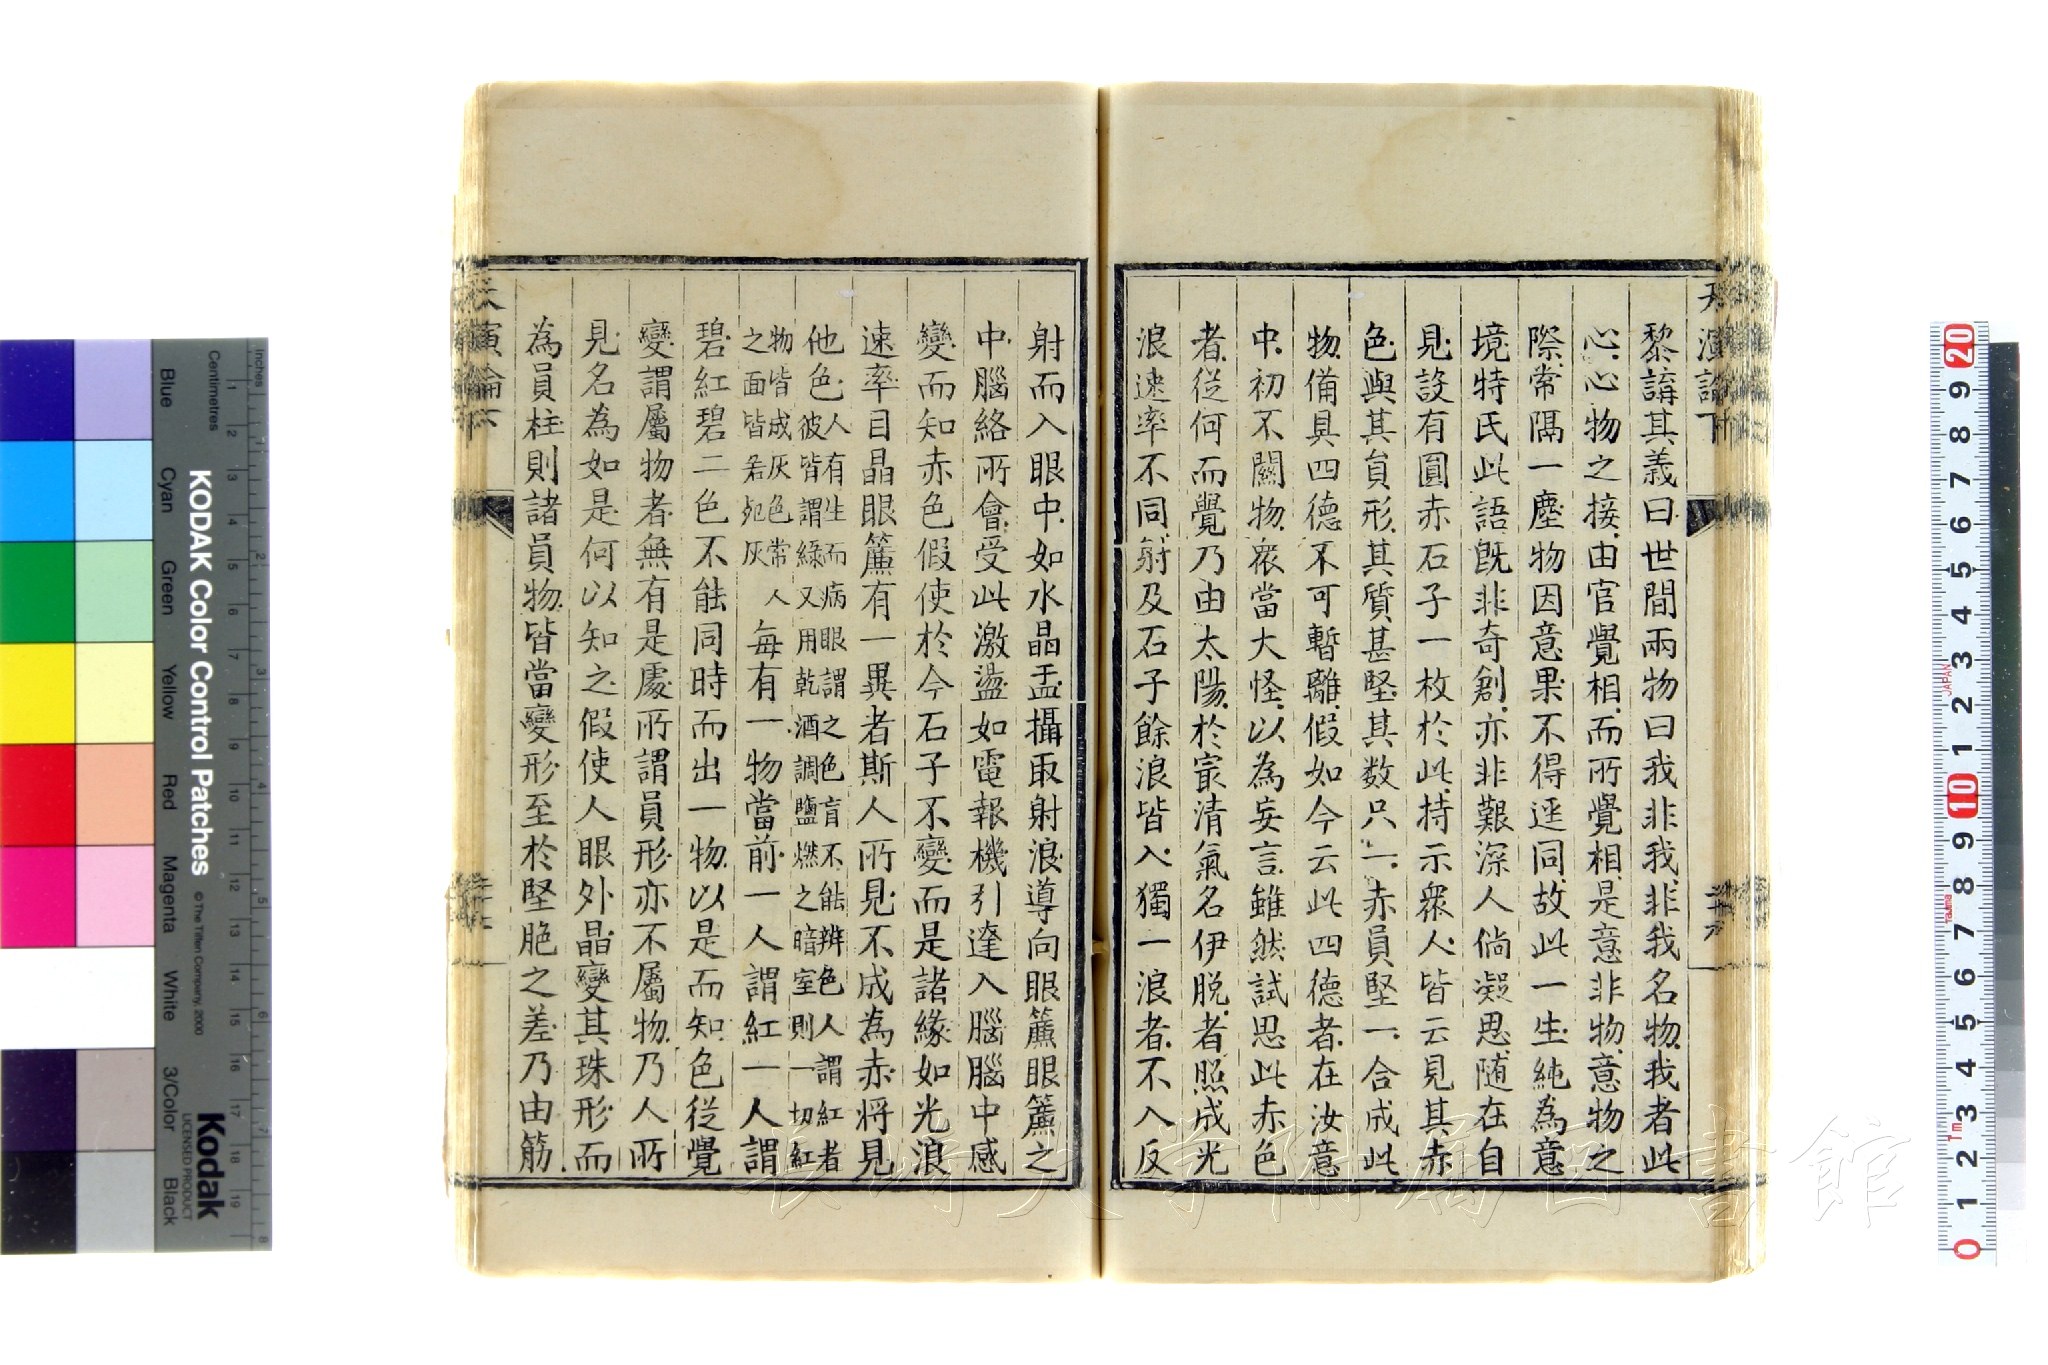 天演論下
二十六
黎講其義曰世間兩物曰我非我非我名物我者此
心心物之接由官覺相而所覺相是意非物意物之
際常隔一塵物因意果不得逕同故此一生純為意
境特氏此語旣非奇創亦非艱深人倘凝思随在自
見設有圓赤石子一枚於此持示衆人皆云見其赤
色與其貟形其質甚堅其数只一赤員堅一合成此
物備具四德不可暫離假如今云此四德者在汝意
中初不關物衆當大怪以為妄言雖然試思此赤色
者從何而覺乃由太陽於㝡清氣名伊脱者照成光
浪速率不同射及石子餘浪皆入獨一浪者不入反
射而入眼中如水晶盂攝取射浪導向眼簾眼簾之
中腦絡所會受此激盪如電報機引達入腦腦中感
變而知赤色假使於今石子不變而是諸緣如光浪
速率目晶眼簾有一異者斯人所見不成為赤將見
他色人有生而病眼謂之色盲不能辨色人謂紅者
彼皆謂綠又用乾酒調鹽燃之暗室則一切紅
物皆成灰色常人
之面皆若死灰
每有一物當前一人謂紅一人謂
碧紅碧二色不能同時而出一物以是而知色從覺
變謂屬物者無有是處所謂員形亦不屬物乃人所
見名為如是何以知之假使人眼外晶變其珠形而
為員柱則諸員物皆當變形至於堅脆之差乃由筋
天演論下
KODAK Color Control Patches
© The Tiffen Company, 2000
Kodak
LICENSED PRODUCT
Centimetres
Inches
Blue
Cyan
Green
Yellow
Red
Magenta
White
3/Color
Black
1 2 3 4 5 6 7 8 9 10 11 12 13 14 15 16 17 18 19
1 2 3 4 5 6 7 8
20 9 8 7 6 5 4 3 2 1 10 9 8 7 6 5 4 3 2 1 0
JAPAN
Tajima
長崎大学附属図書館